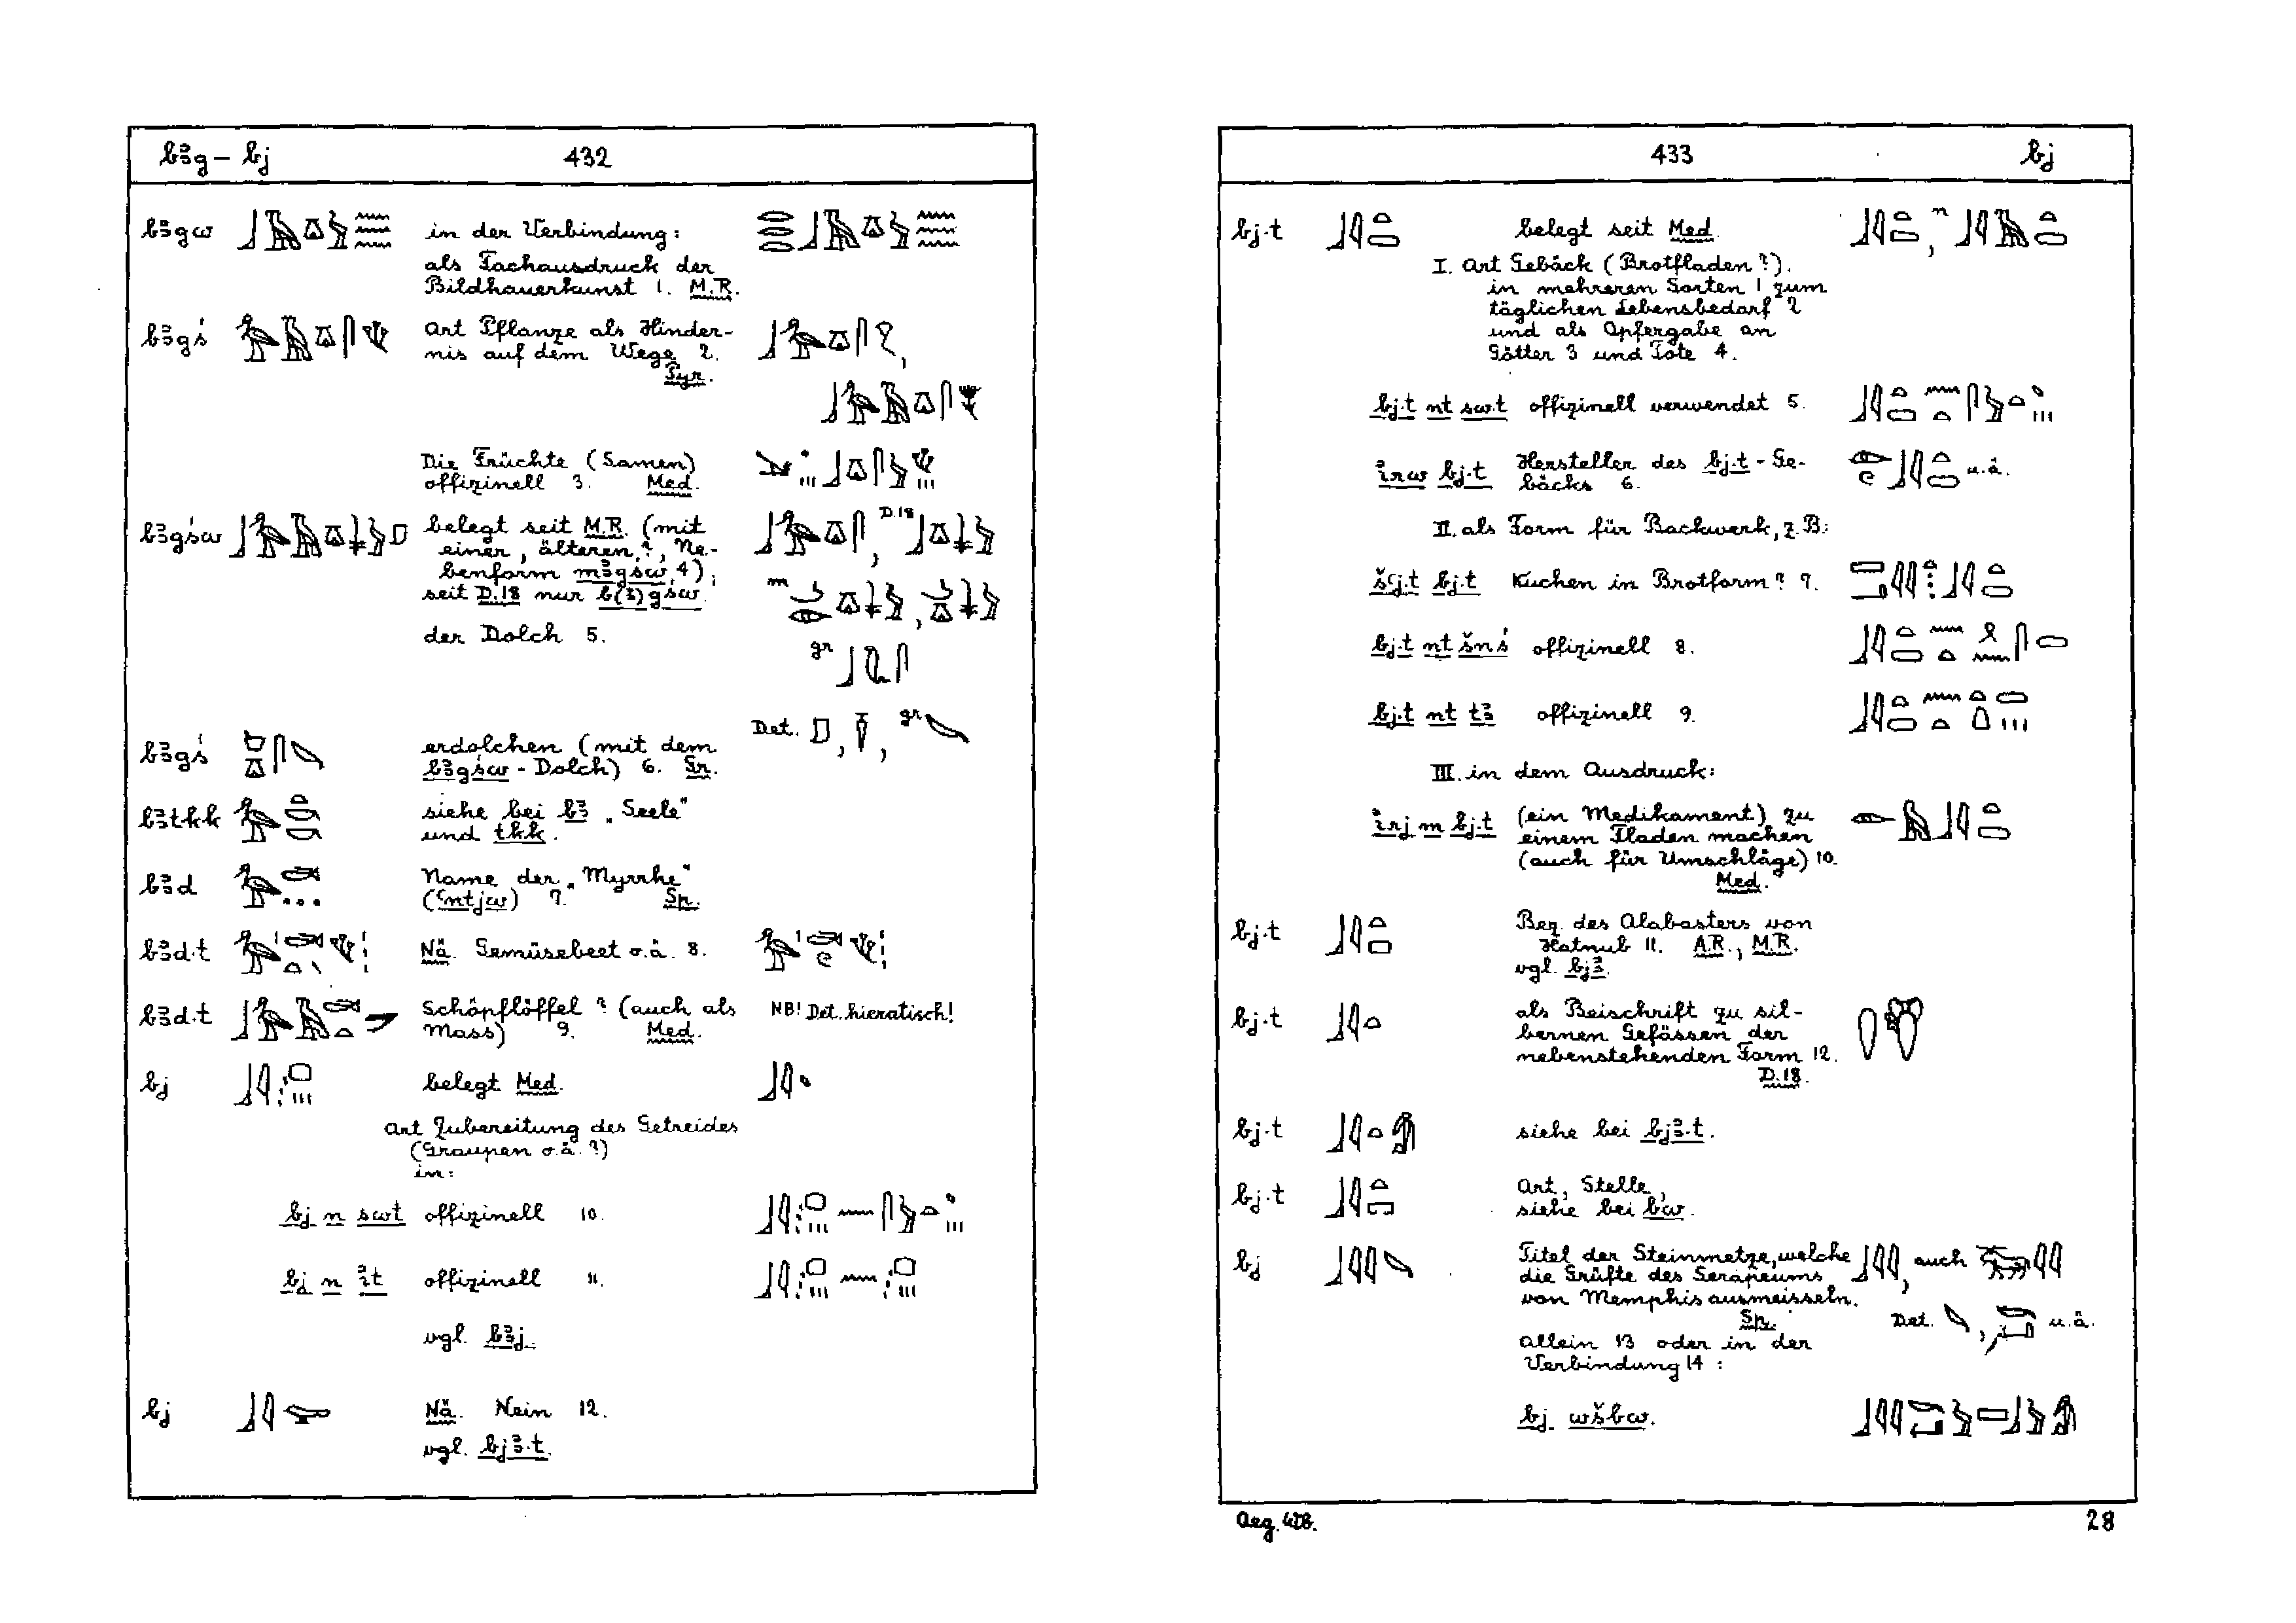 bꜣg – bj 432
bꜣgw in der Verbindung:
als Fachausdruck der
Bildhauerkunst 1. M.R.
bꜣgś art Pflanze als Hinder-
nis auf dem Wege 2.
Pyr.
Die Früchte (Samen)
offizinell 3. Med.
bꜣgśw belegt seit M.R. (mit D.18
einer, älteren?, Ne-
benform mꜣgśw 4); m
seit D.18 nur b(ꜣ)gśw.
der Dolch 5.
gr
Det. , , gr
bꜣgś erdolchen (mit dem
bꜣgśw - Dolch) 6. Gr.
bꜣtkk siehe bei bꜣ „Seele"
und tkk.
bꜣd Name der „Myrrhe"
(ꜥntjw) 7. Sp.
bꜣd.t Nä. Gemüsebeet o.ä. 8.
bꜣd.t Schöpflöffel ? (auch als NB! Det. hieratisch!
Mass) 9. Med.
bj belegt Med.
Art Zubereitung des Getreides
(Graupen o.ä.?)
in:
bj n swt offizinell 10.
bj n ꞽt offizinell 11.
vgl. bꜣj.
bj Nä. Nein 12.
vgl. bjꜣ.t.
433 bj
bj.t belegt seit Med. n
I. Art Gebäck (Brotfladen?).
in mehreren Sorten 1 zum
täglichen Lebensbedarf 2
und als Opfergabe an
Götter 3 und Tote 4.
bj.t nt sw.t offizinell verwendet 5.
ꞽrw bj.t Hersteller des bj.t - Ge- u.ä.
bäcks 6.
II. als Form für Backwerk, z.B:
šꜥj.t bj.t Kuchen in Brotform? 7.
bj.t nt šnś offizinell 8.
bj.t nt tꜣ offizinell 9.
III. in dem Ausdruck:
ꞽrj m bj.t (ein Medikament) zu
einem Fladen machen
(auch für Umschläge) 10.
Med.
bj.t Bez. des Alabasters von
Hatnub 11. A.R., M.R.
vgl. bjꜣ.
bj.t als Beischrift zu sil-
bernen Gefässen der
nebenstehenden Form 12.
D.18.
bj.t siehe bei bjꜣ.t.
bj.t Art, Stelle,
siehe bei bw.
bj Titel der Steinmetze, welche , auch
die Grüfte des Serapeums
von Memphis ausmeisseln.
Sp. Det. , u.ä.
allein 13 oder in der
Verbindung 14 :
bj wšbw.
Aeg. Wb. 28